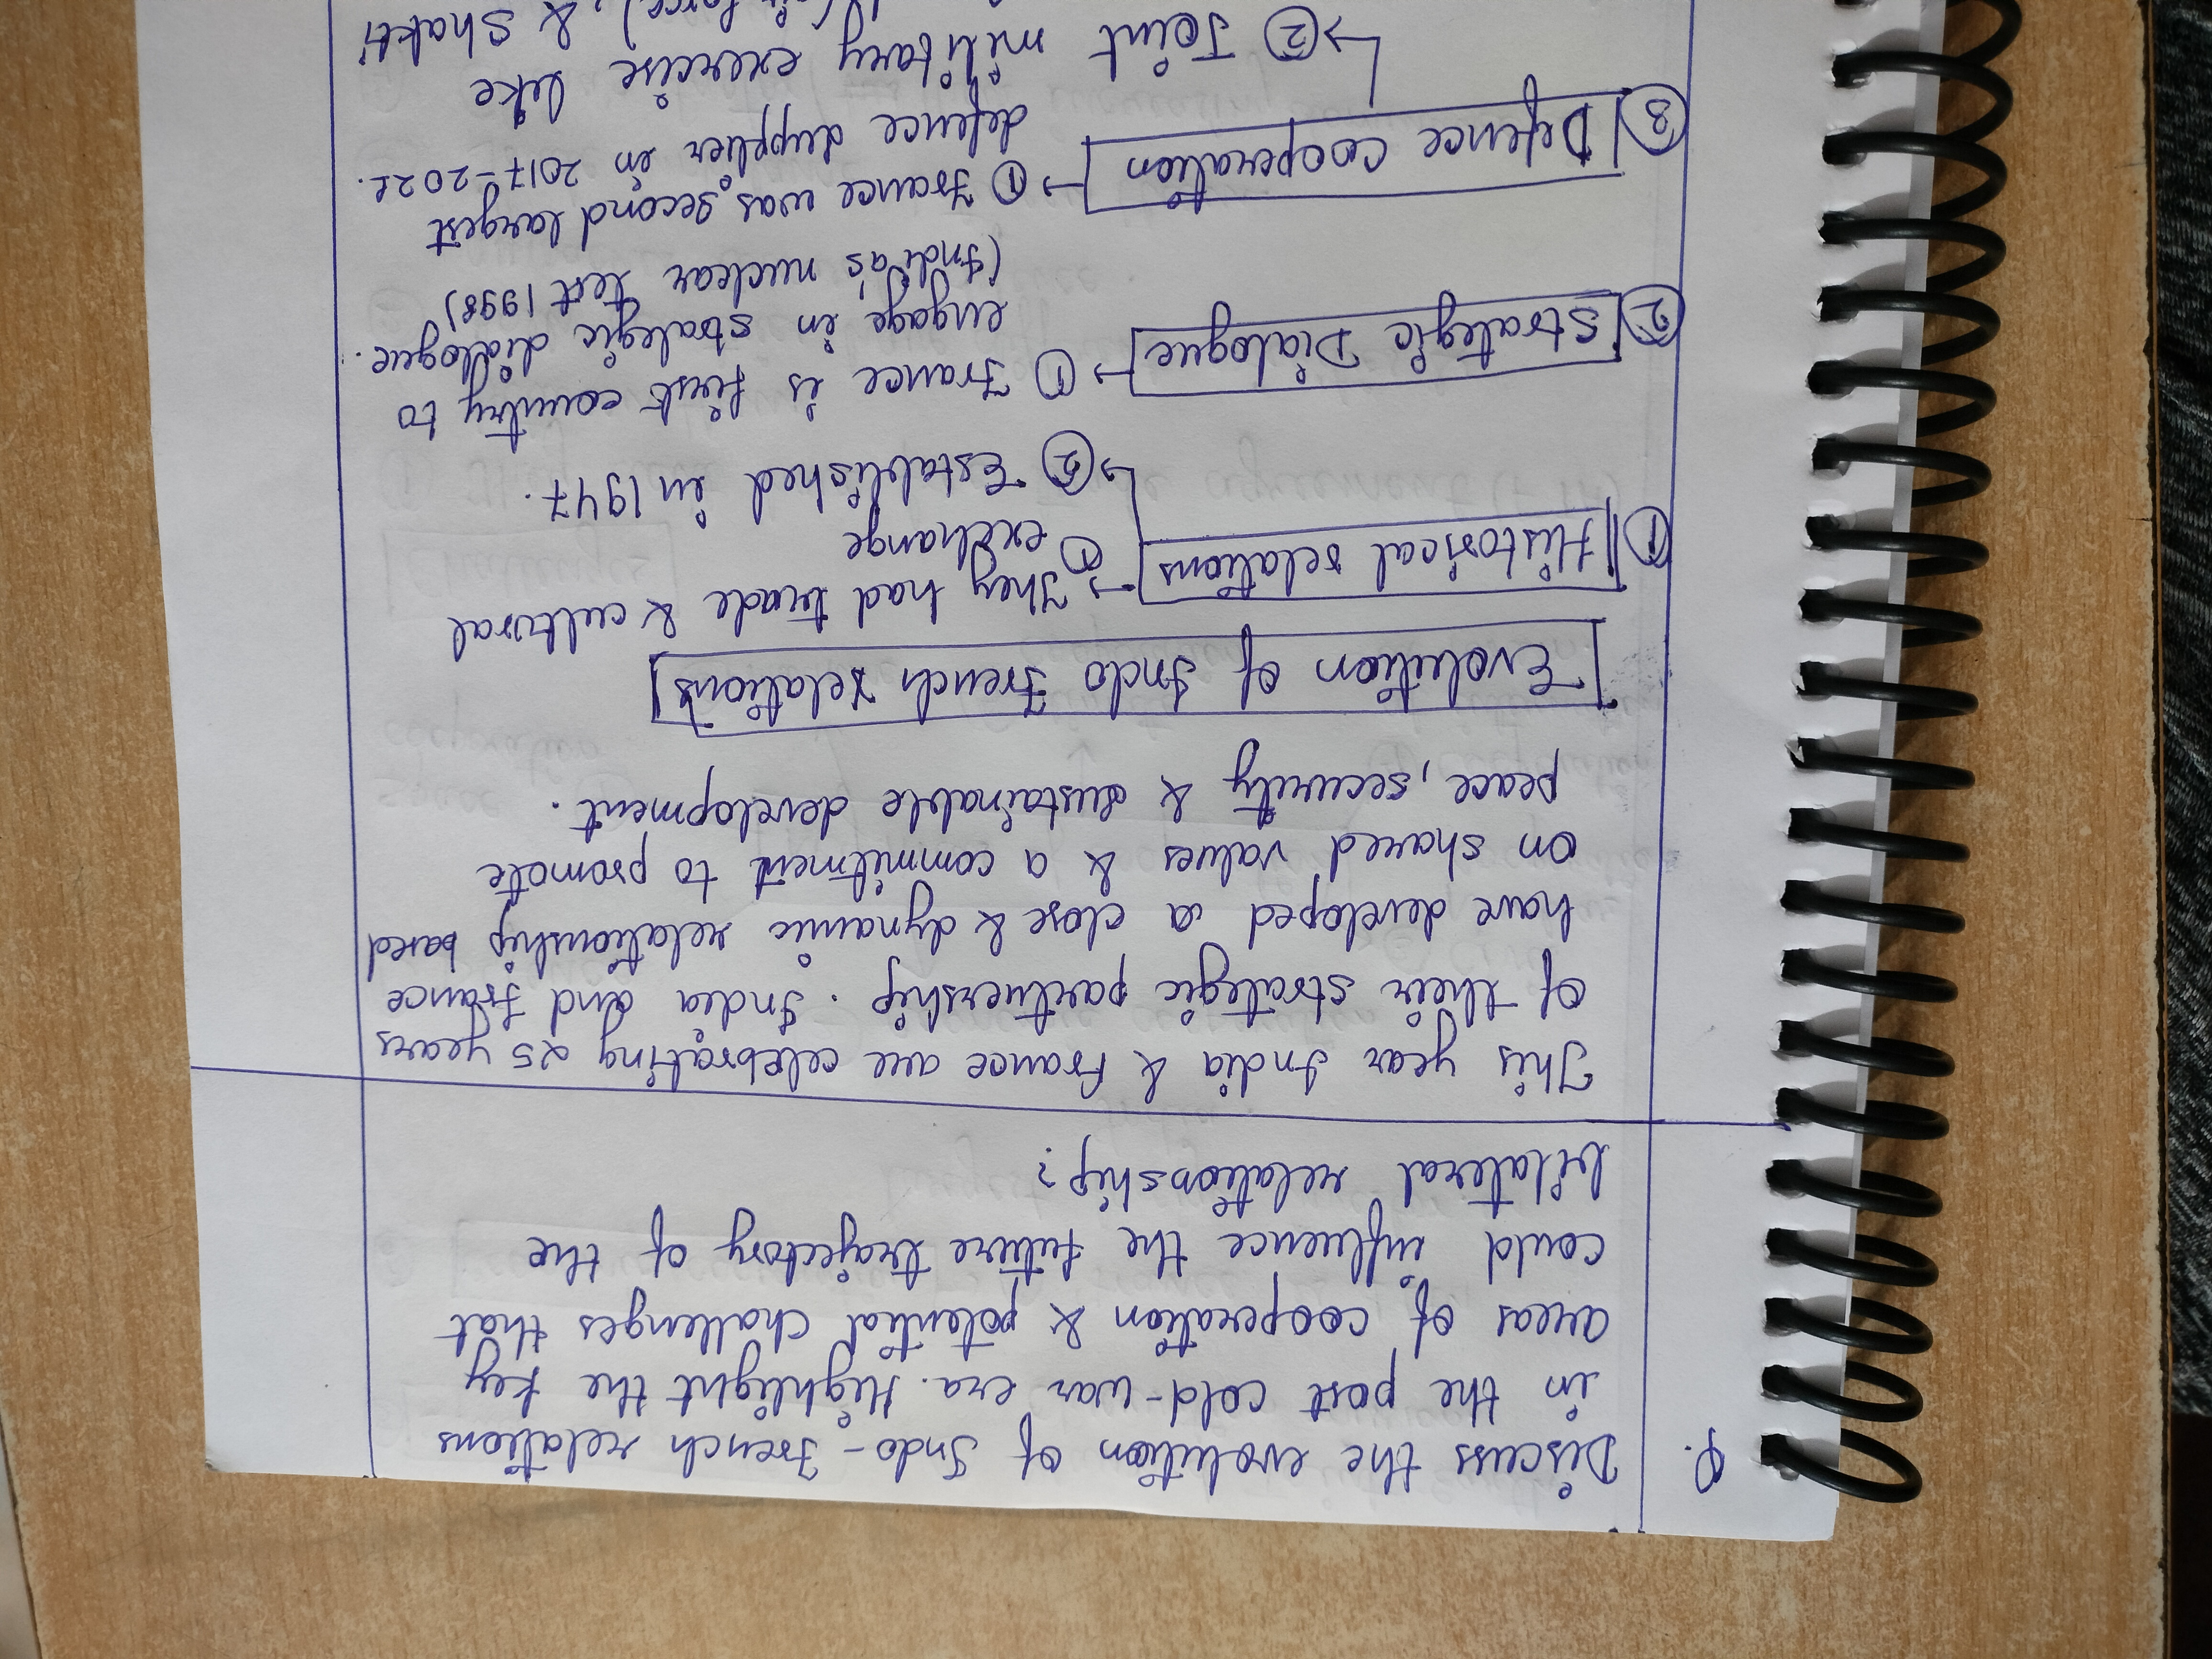 Q. Discuss the evolution of Indo-French relations
in the post cold-war era. Highlight the key
areas of cooperation & potential challenges that
could influence the future trajectory of the
bilateral relationship?
This year India & France are celebrating 25 years
of their strategic partnership. India and France
have developed a close & dynamic relationship based
on shared values & a commitment to promote
peace, security & sustainable development.
Evolution of Indo French relations
① Historical relations → ① They had trade & cultural
exchange
↳ ② Established in 1947.
② Strategic Dialogue → ① France is first country to
engage in strategic dialogue.
(India's nuclear test 1998)
③ Defence cooperation → ① France was second largest
defence supplier in 2017-2021.
↳ ② Joint military exercise like
(air force), & Shakti